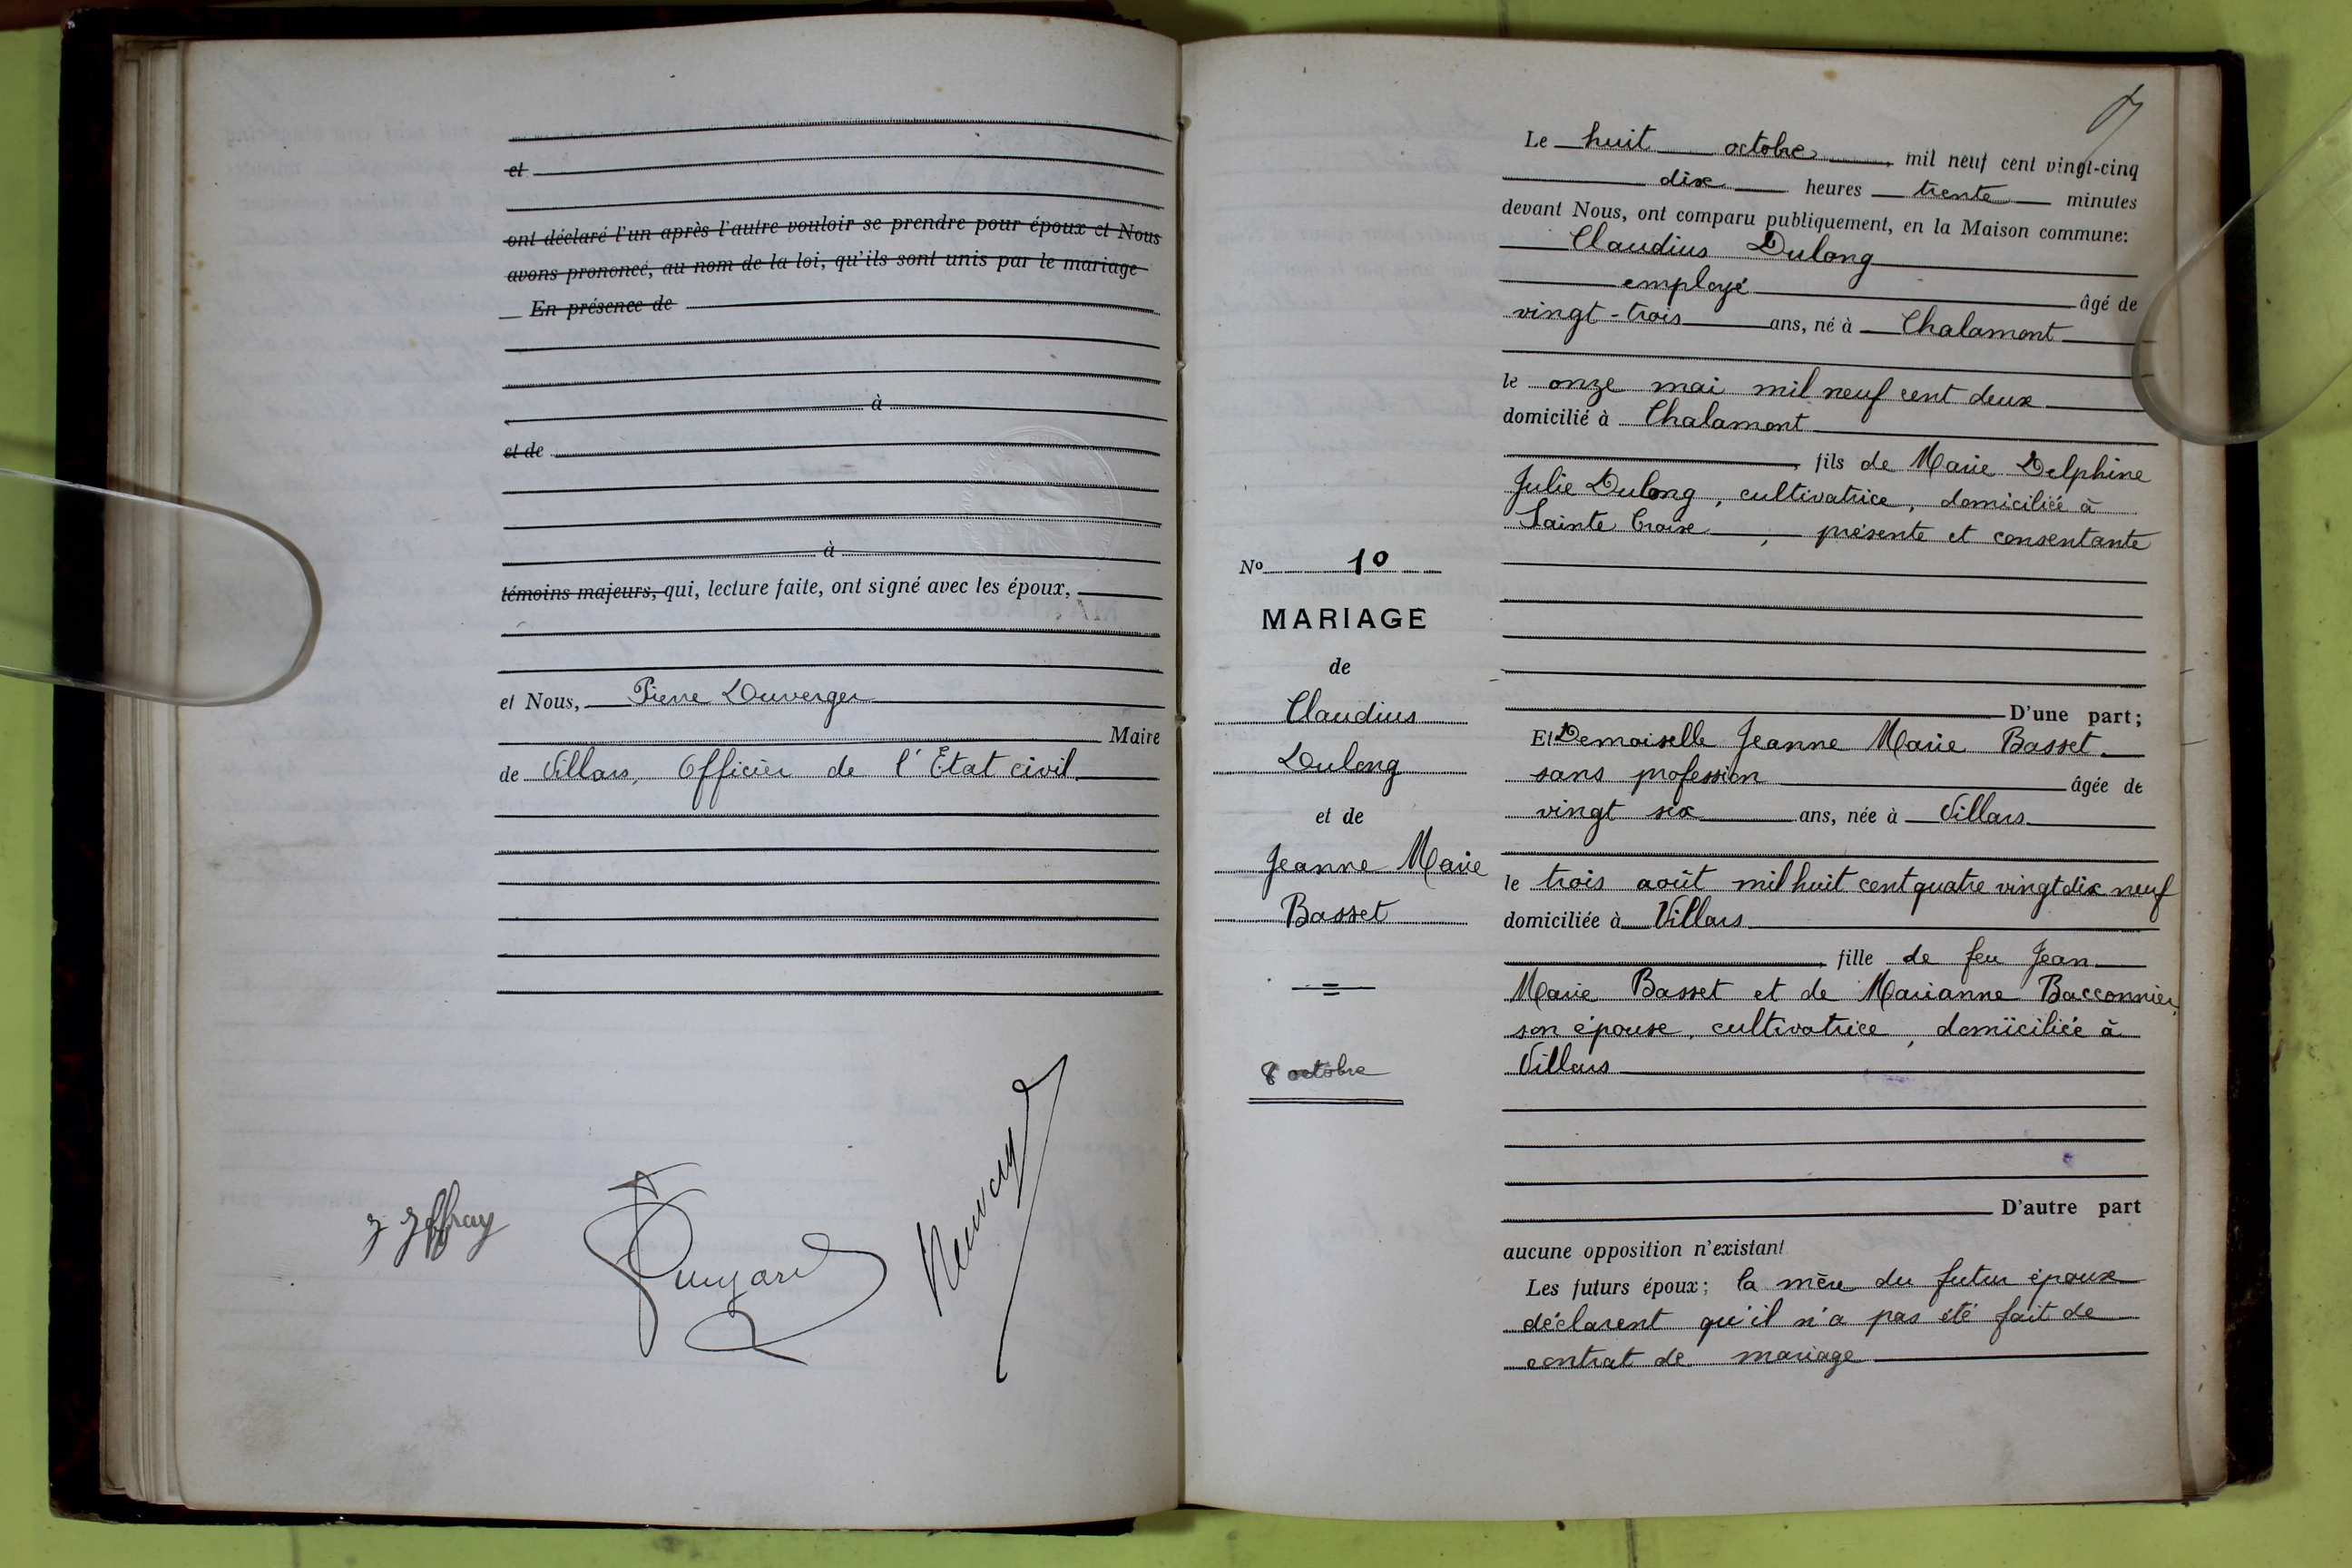 et
ont déclaré l'un après l'autre vouloir se prendre pour époux et Nous
avons prononcé, au nom de la loi, qu'ils sont unis par le mariage
En présence de
à
et de
à
témoins majeurs, qui, lecture faite, ont signé avec les époux,
et Nous, Pierre Duverger
Maire
de Villars, Officier de l'Etat civil
J Joffray
Le huit octobre, mil neuf cent vingt-cinq
dix heures trente minutes
devant Nous, ont comparu publiquement, en la Maison commune:
Claudius Dulong
employé âgé de
vingt-trois ans, né à Chalamont
le onze mai mil neuf cent deux
domicilié à Chalamont
, fils de Marie Delphine
Julie Dulong, cultivatrice, domiciliée à
Sainte Croix, présente et consentante
D'une part;
Et Demoiselle Jeanne Marie Basset
sans profession âgée de
vingt six ans, née à Villars
le trois août mil huit cent quatre vingt dix neuf
domiciliée à Villars
, fille de feu Jean
Marie Basset et de Marianne Bacconnier,
son épouse, cultivatrice, domiciliée à
Villars
D'autre part
aucune opposition n'existant
Les futurs époux; la mère du futur époux
déclarent qu'il n'a pas été fait de
contrat de mariage
No 10
MARIAGE
de
Claudius
Dulong
et de
Jeanne Marie
Basset
8 octobre